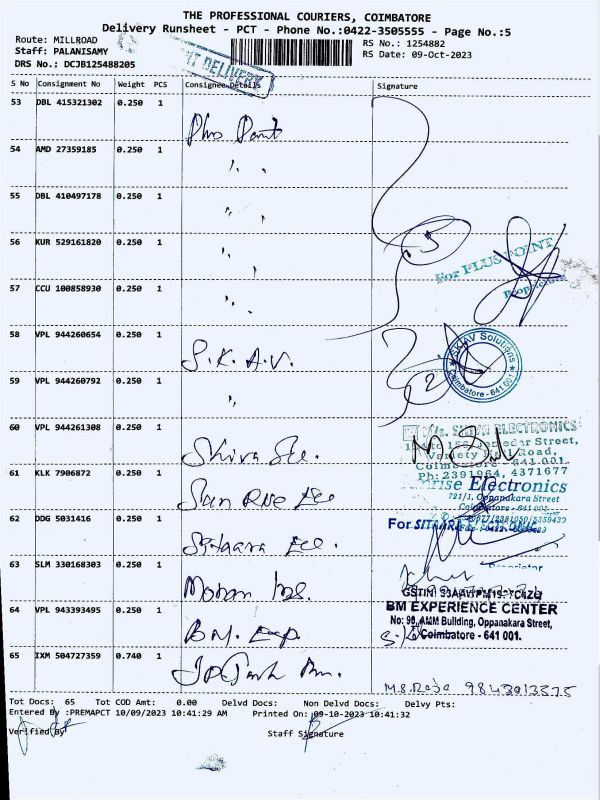 THE PROFESSIONAL COURIERS, COIMBATORE
Delivery Runsheet - PCT - Phone No.:0422-3505555 - Page No.:5
Route: MILLROAD RS No.: 1254882
Staff: PALANISAMY RS Date: 09-Oct-2023
DRS No.: DCJB125488205
DELIVERY
S No Consignment No Weight PCS Consignee Details Signature
53 DBL 415321302 0.250 1
54 AMD 27359185 0.250 1 "
55 DBL 410497178 0.250 1 "
56 KUR 529161820 0.250 1 "
5
For PLUS POINT
Proprietor
57 CCU 100858930 0.250 1 "
58 VPL 944260654 0.250 1 S.K.A.V.
SKAV Solutions
Coimbatore - 641 001
59 VPL 944260792 0.250 1 "
2
60 VPL 944261308 0.250 1 Shiva Ele.
ELECTRONICS
Street,
Road,
641 001.
Ph: 2391964, 4371677
61 KLK 7906872 0.250 1 Sun Rise Ele
Electronics
721/1, Oppanakara Street
Coimbatore - 641 001
62 DDG 5031416 0.250 1 Sitaara Ele.
For SITAARA
Proprietor
63 SLM 330168303 0.250 1
64 VPL 943393495 0.250 1 B.M. Exp
BM EXPERIENCE CENTER
No: 98, AMM Building, Oppanakara Street,
Coimbatore - 641 001.
65 IXM 504727359 0.740 1
Tot Docs: 65 Tot COD Amt: 0.00 Delvd Docs: Non Delvd Docs: Delvy Pts:
Entered By :PREMAPCT 10/09/2023 10:41:29 AM Printed On: 09-10-2023 10:41:32
Verified By Staff Signature